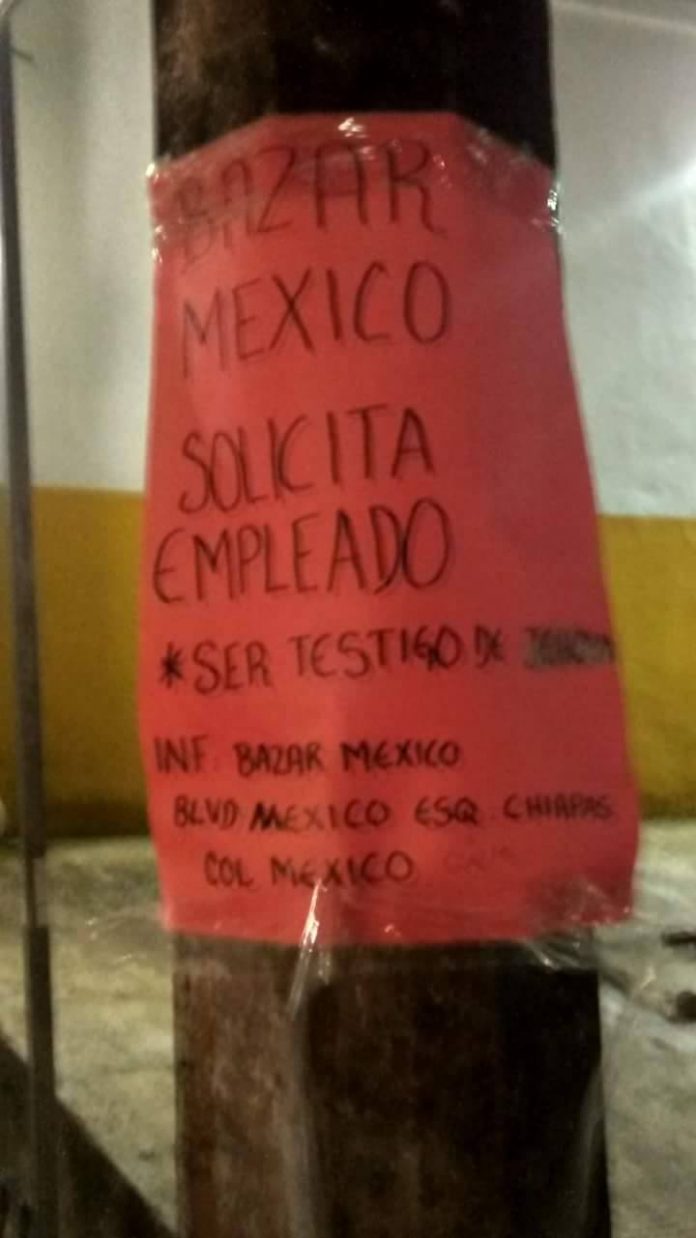 BAZAR
MEXICO
SOLICITA
EMPLEADO
*SER TESTIGO DE
INF. BAZAR MEXICO
BLVD MEXICO ESQ. CHIAPAS
COL MEXICO